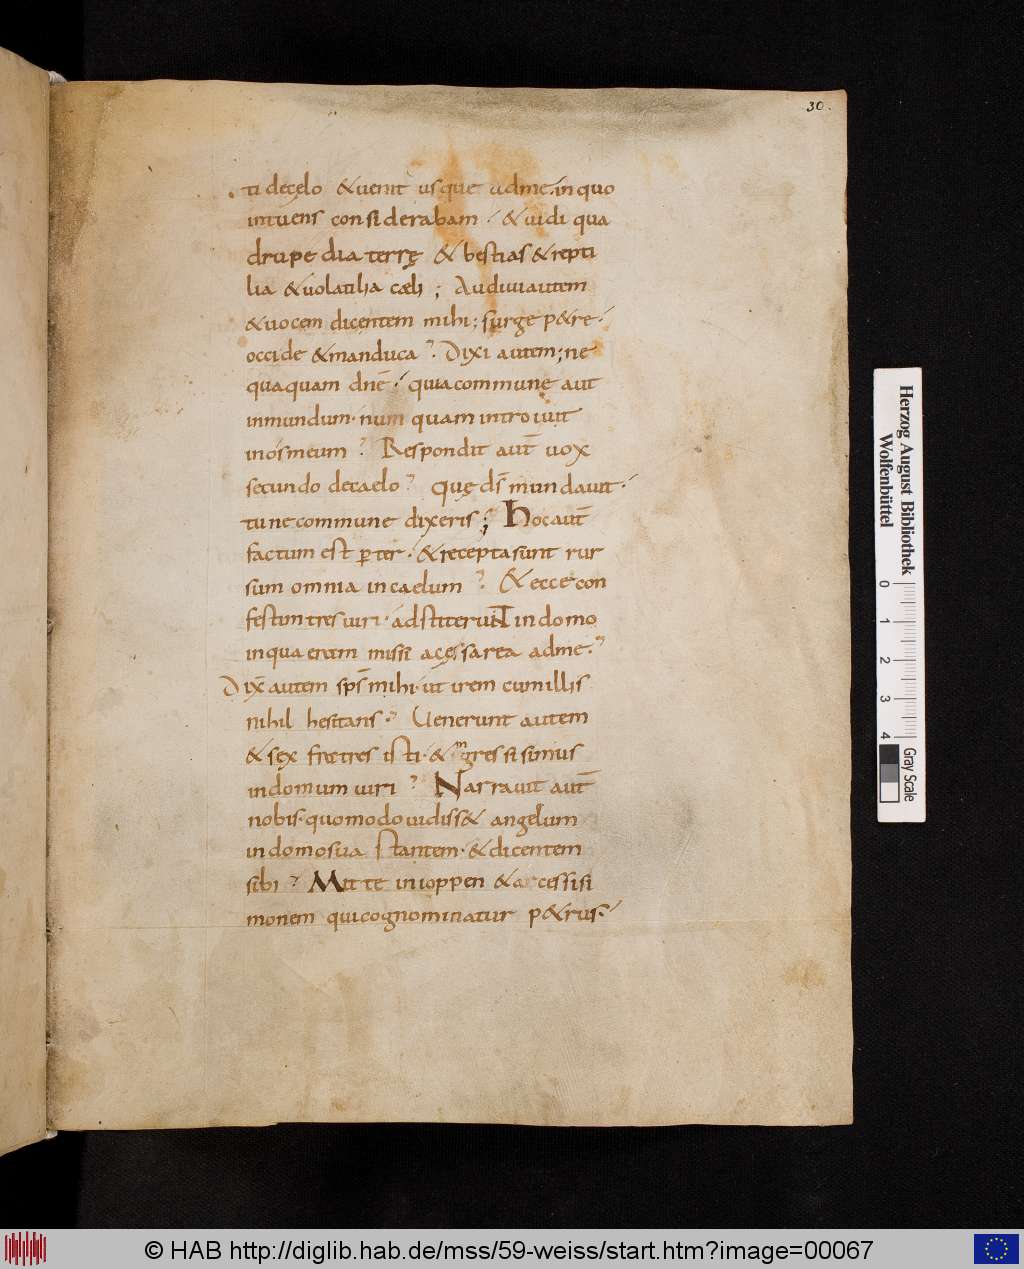 30.
ti decęlo &uenit usque adme. in quo
intuens considerabam ./ &uidi qua
drupedia terrę & bestias & repti
lia &uolatilia cæli ; Audiui autem
&uocem dicentem mihi ; surge p&re ./
occide &manduca ? Dixi autem ; ne
quaquam dnē ./ quia commune aut
inmundum · num quam introiuit
inós meum ? Respondit aut̄ uox
secundo decaelo ? Quę ds̄ mundauit ./
tu ne commune dixeris ; hoc aut̄
factum est ꝑter · & recepta sunt rur
sum omnia in caelum ? & ecce con
festim tres uiri · adstiterunt in domo
in qua eram missi acęsarea adme . ?
Dix̄ autem sps̄ mihi · ut irem cum illis
nihil hesitans . ? Uenerunt autem
& sex fratres isti · & ingressi sumus
in domum uiri ? Narrauit aut̄
nobis · quomodo uidiss& angelum
in domo sua stantem · & dicentem
sibi ? Mitte in ioppen & arcessi si
monem qui cognominatur p&rus ./
Herzog August Bibliothek
Wolfenbüttel
0 1 2 3 4
Gray Scale
© HAB http://diglib.hab.de/mss/59-weiss/start.htm?image=00067